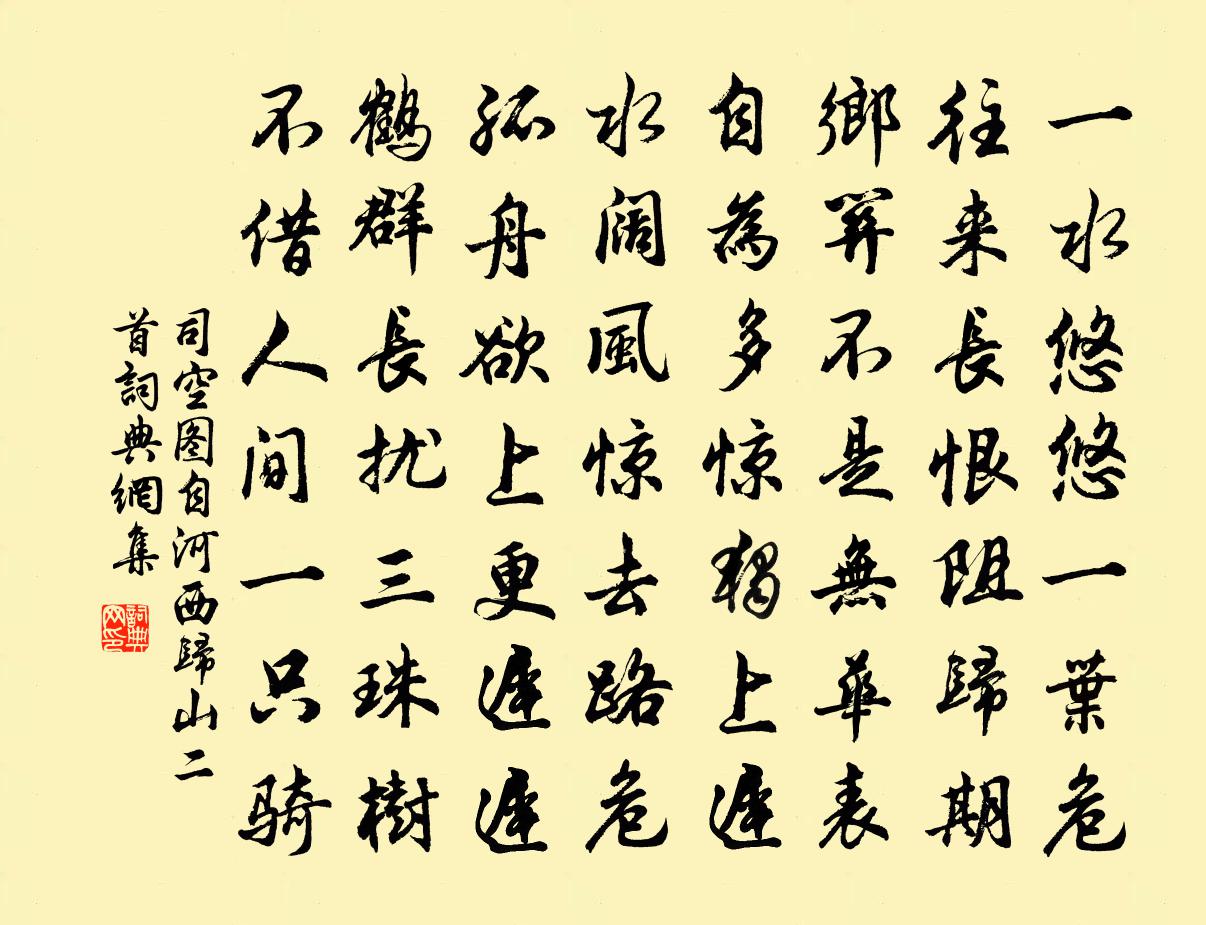 一水悠悠一葉危
往来長恨阻歸期
鄉關不是無華表
自為多惊獨上遲
水闊風惊去路危
孤舟欲上更遲遲
鶴群長扰三珠樹
不借人间一只骑
司空图自河西歸山二
首詞典網集
詞典
网印